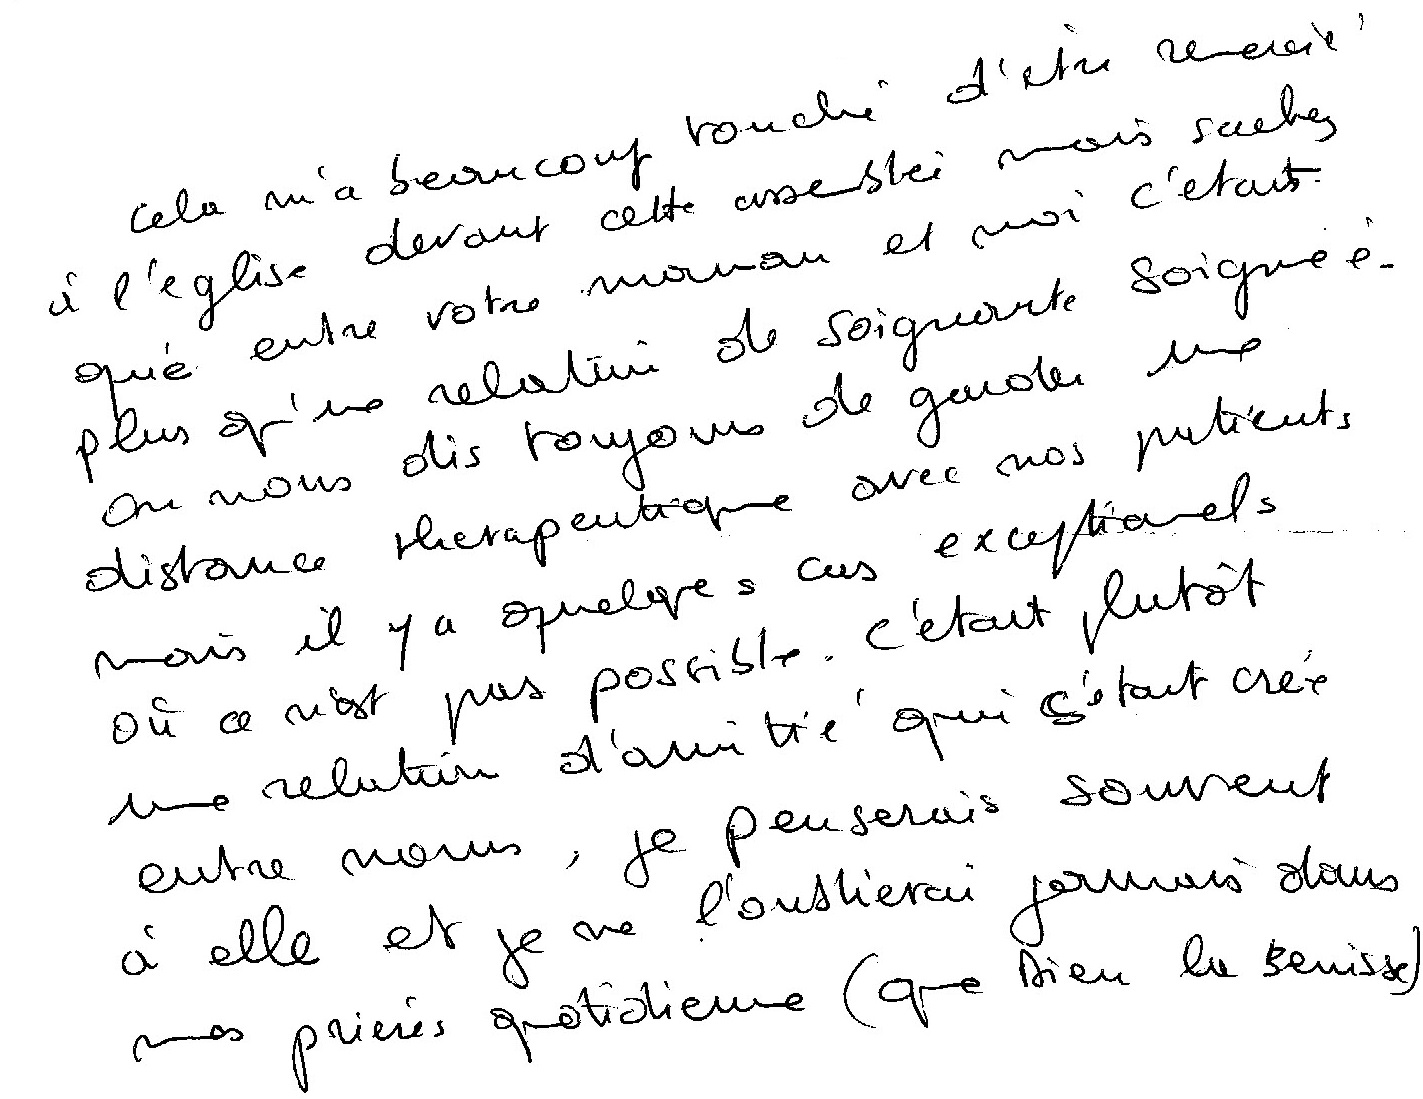 cela m'a beaucoup touché d'être remercié
à l'église devant cette assemblée mais sachez
qu'e entre votre maman et moi c'etait
plus qu'une relation de soignante soignée.
on nous dis toujours de garder une
distance therapeutique avec nos patients
mais il y a quelques cas exceptionels
où ce n'est pas possible. c'était plutôt
une relation d'amitié qui s'était crée
entre nous, je penserais souvent
à elle et je ne l'oublierai jamais dans
mes prières quotidienne (que Dieu la benisse)